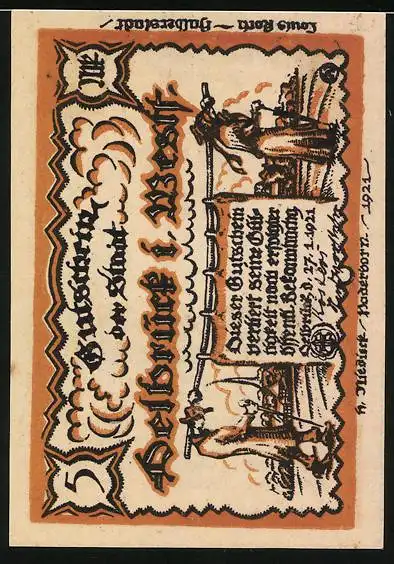 5 Gutschein Mk
der Stadt
Delbrück i. Westf.
Dieser Gutschein
verliert seine Gül-
tigkeit nach erfolgter
öffentl. Bekanntmachung.
Delbrück, d. 27. 1. 1921
H. Niedieck - Paderborn. - 1921
Louis Koch - Halberstadt